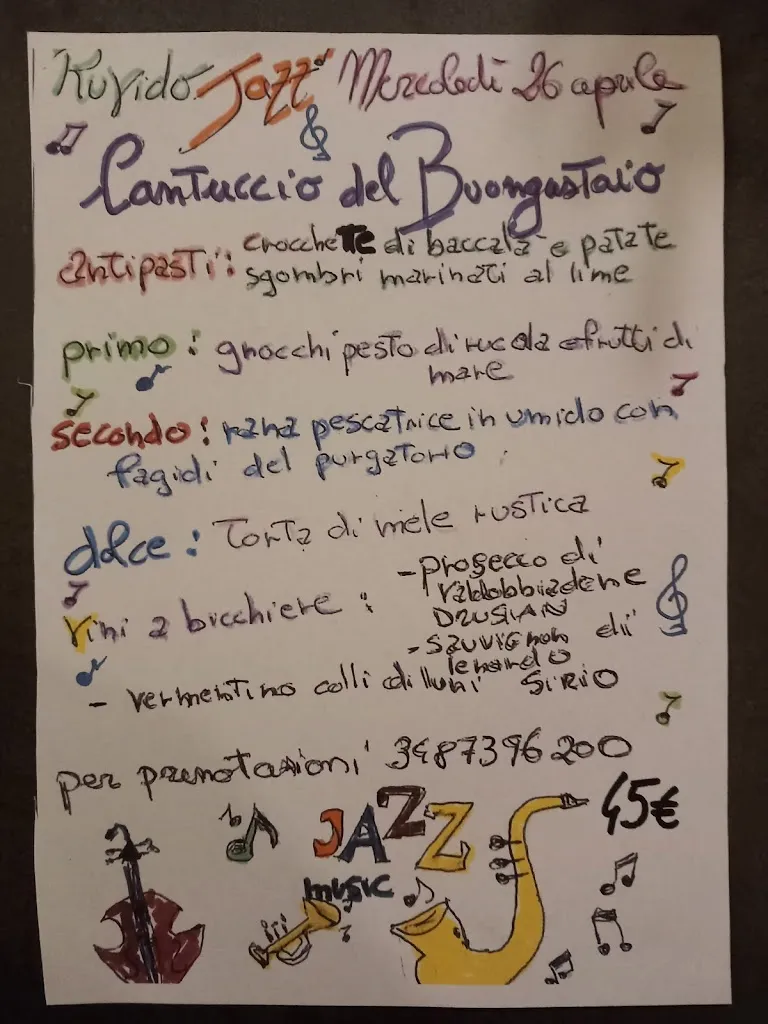 Kuvido Jazz Mercoledì 26 aprile
Cantuccio del Buongustaio
antipasti: crocchette di baccalà e patate
sgombri marinati al lime
primo: gnocchi pesto di rucola e frutti di
mare
secondo: rana pescatrice in umido con
fagioli del purgatorio
dolce: Torta di mele rustica
vini a bicchiere:
- prosecco di
valdobbiadene
DRUSIAN
- sauvignon di
lenardo
- vermentino colli di luni SIRIO
per prenotazioni 3487396200
45€
JAZZ
music